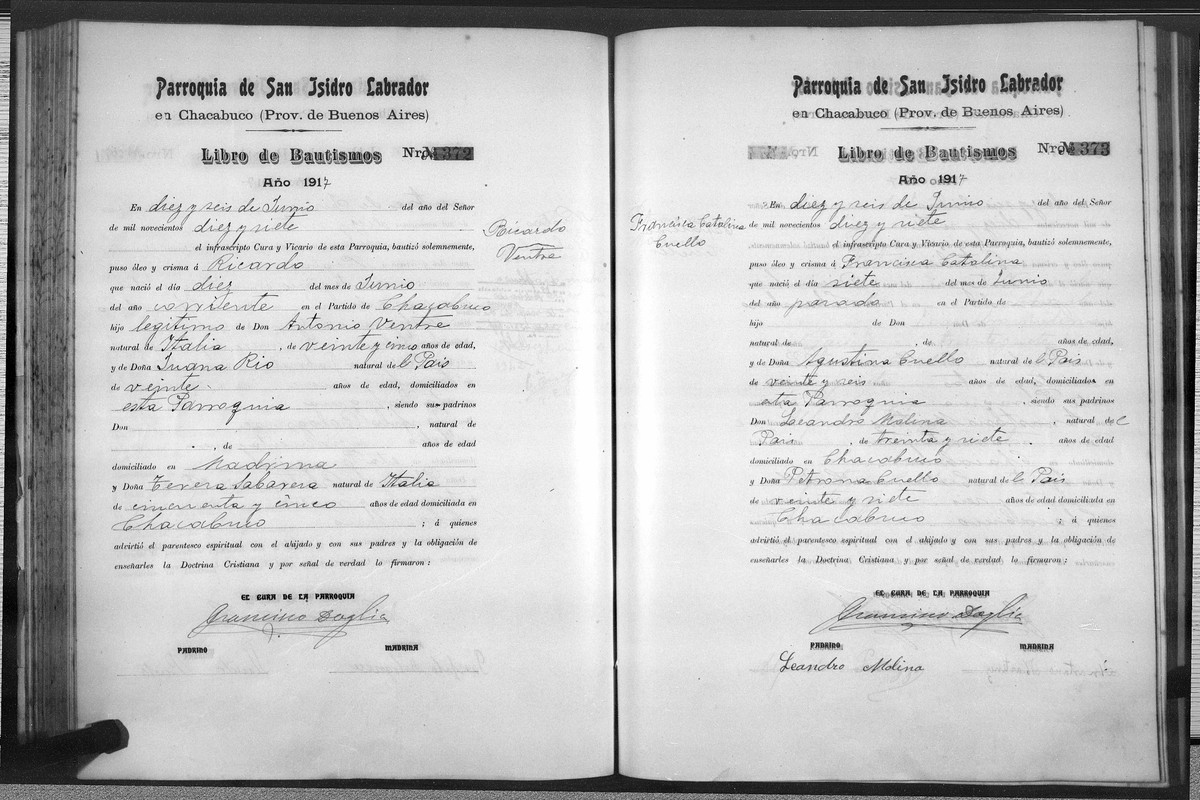 Parroquia de San Isidro Labrador
en Chacabuco (Prov. de Buenos Aires)
Libro de Bautismos Nro. № 372
Año 1917
En diez y seis de Junio del año del Señor
de mil novecientos diez y siete
el infrascripto Cura y Vicario de esta Parroquia, bautizó solemnemente,
puso óleo y crisma á Ricardo
que nació el día diez del mes de Junio
del año corriente en el Partido de Chacabuco
hijo legitimo de Don Antonio Ventre
natural de Italia, de veinte y cinco años de edad,
y de Doña Juana Rio natural de l Pais
de veinte años de edad, domiciliados en
esta Parroquia, siendo sus padrinos
Don , natural de
, de años de edad
domiciliado en Madrina
y Doña Teresa natural de Italia
de cincuenta y cinco años de edad domiciliada en
Chacabuco ; á quienes
advirtió el parentesco espiritual con el ahijado y con sus padres y la obligación de
enseñarles la Doctrina Cristiana y por señal de verdad lo firmaron:
EL CURA DE LA PARROQUIA
PADRINO MADRINA
Ricardo
Ventre
Parroquia de San Isidro Labrador
en Chacabuco (Prov. de Buenos Aires)
Libro de Bautismos Nro. № 373
Año 1917
Francisca Catalina
Cuello
En diez y seis de Junio del año del Señor
de mil novecientos diez y siete
el infrascripto Cura y Vicario de esta Parroquia, bautizó solemnemente,
puso óleo y crisma á Francisca Catalina
que nació el día siete del mes de Junio
del año pasado en el Partido de
hijo de Don
natural de , de años de edad,
y de Doña Agustina Cuello natural de l Pais
de veinte y seis años de edad, domiciliados en
esta Parroquia, siendo sus padrinos
Don Leandro Molina, natural de l
Pais, de treinta y siete años de edad
domiciliado en Chacabuco
y Doña Petrona Cuello natural de l Pais
de veinte y siete años de edad domiciliada en
Chacabuco ; á quienes
advirtió el parentesco espiritual con el ahijado y con sus padres y la obligación de
enseñarles la Doctrina Cristiana y por señal de verdad lo firmaron:
EL CURA DE LA PARROQUIA
PADRINO MADRINA
Leandro Molina